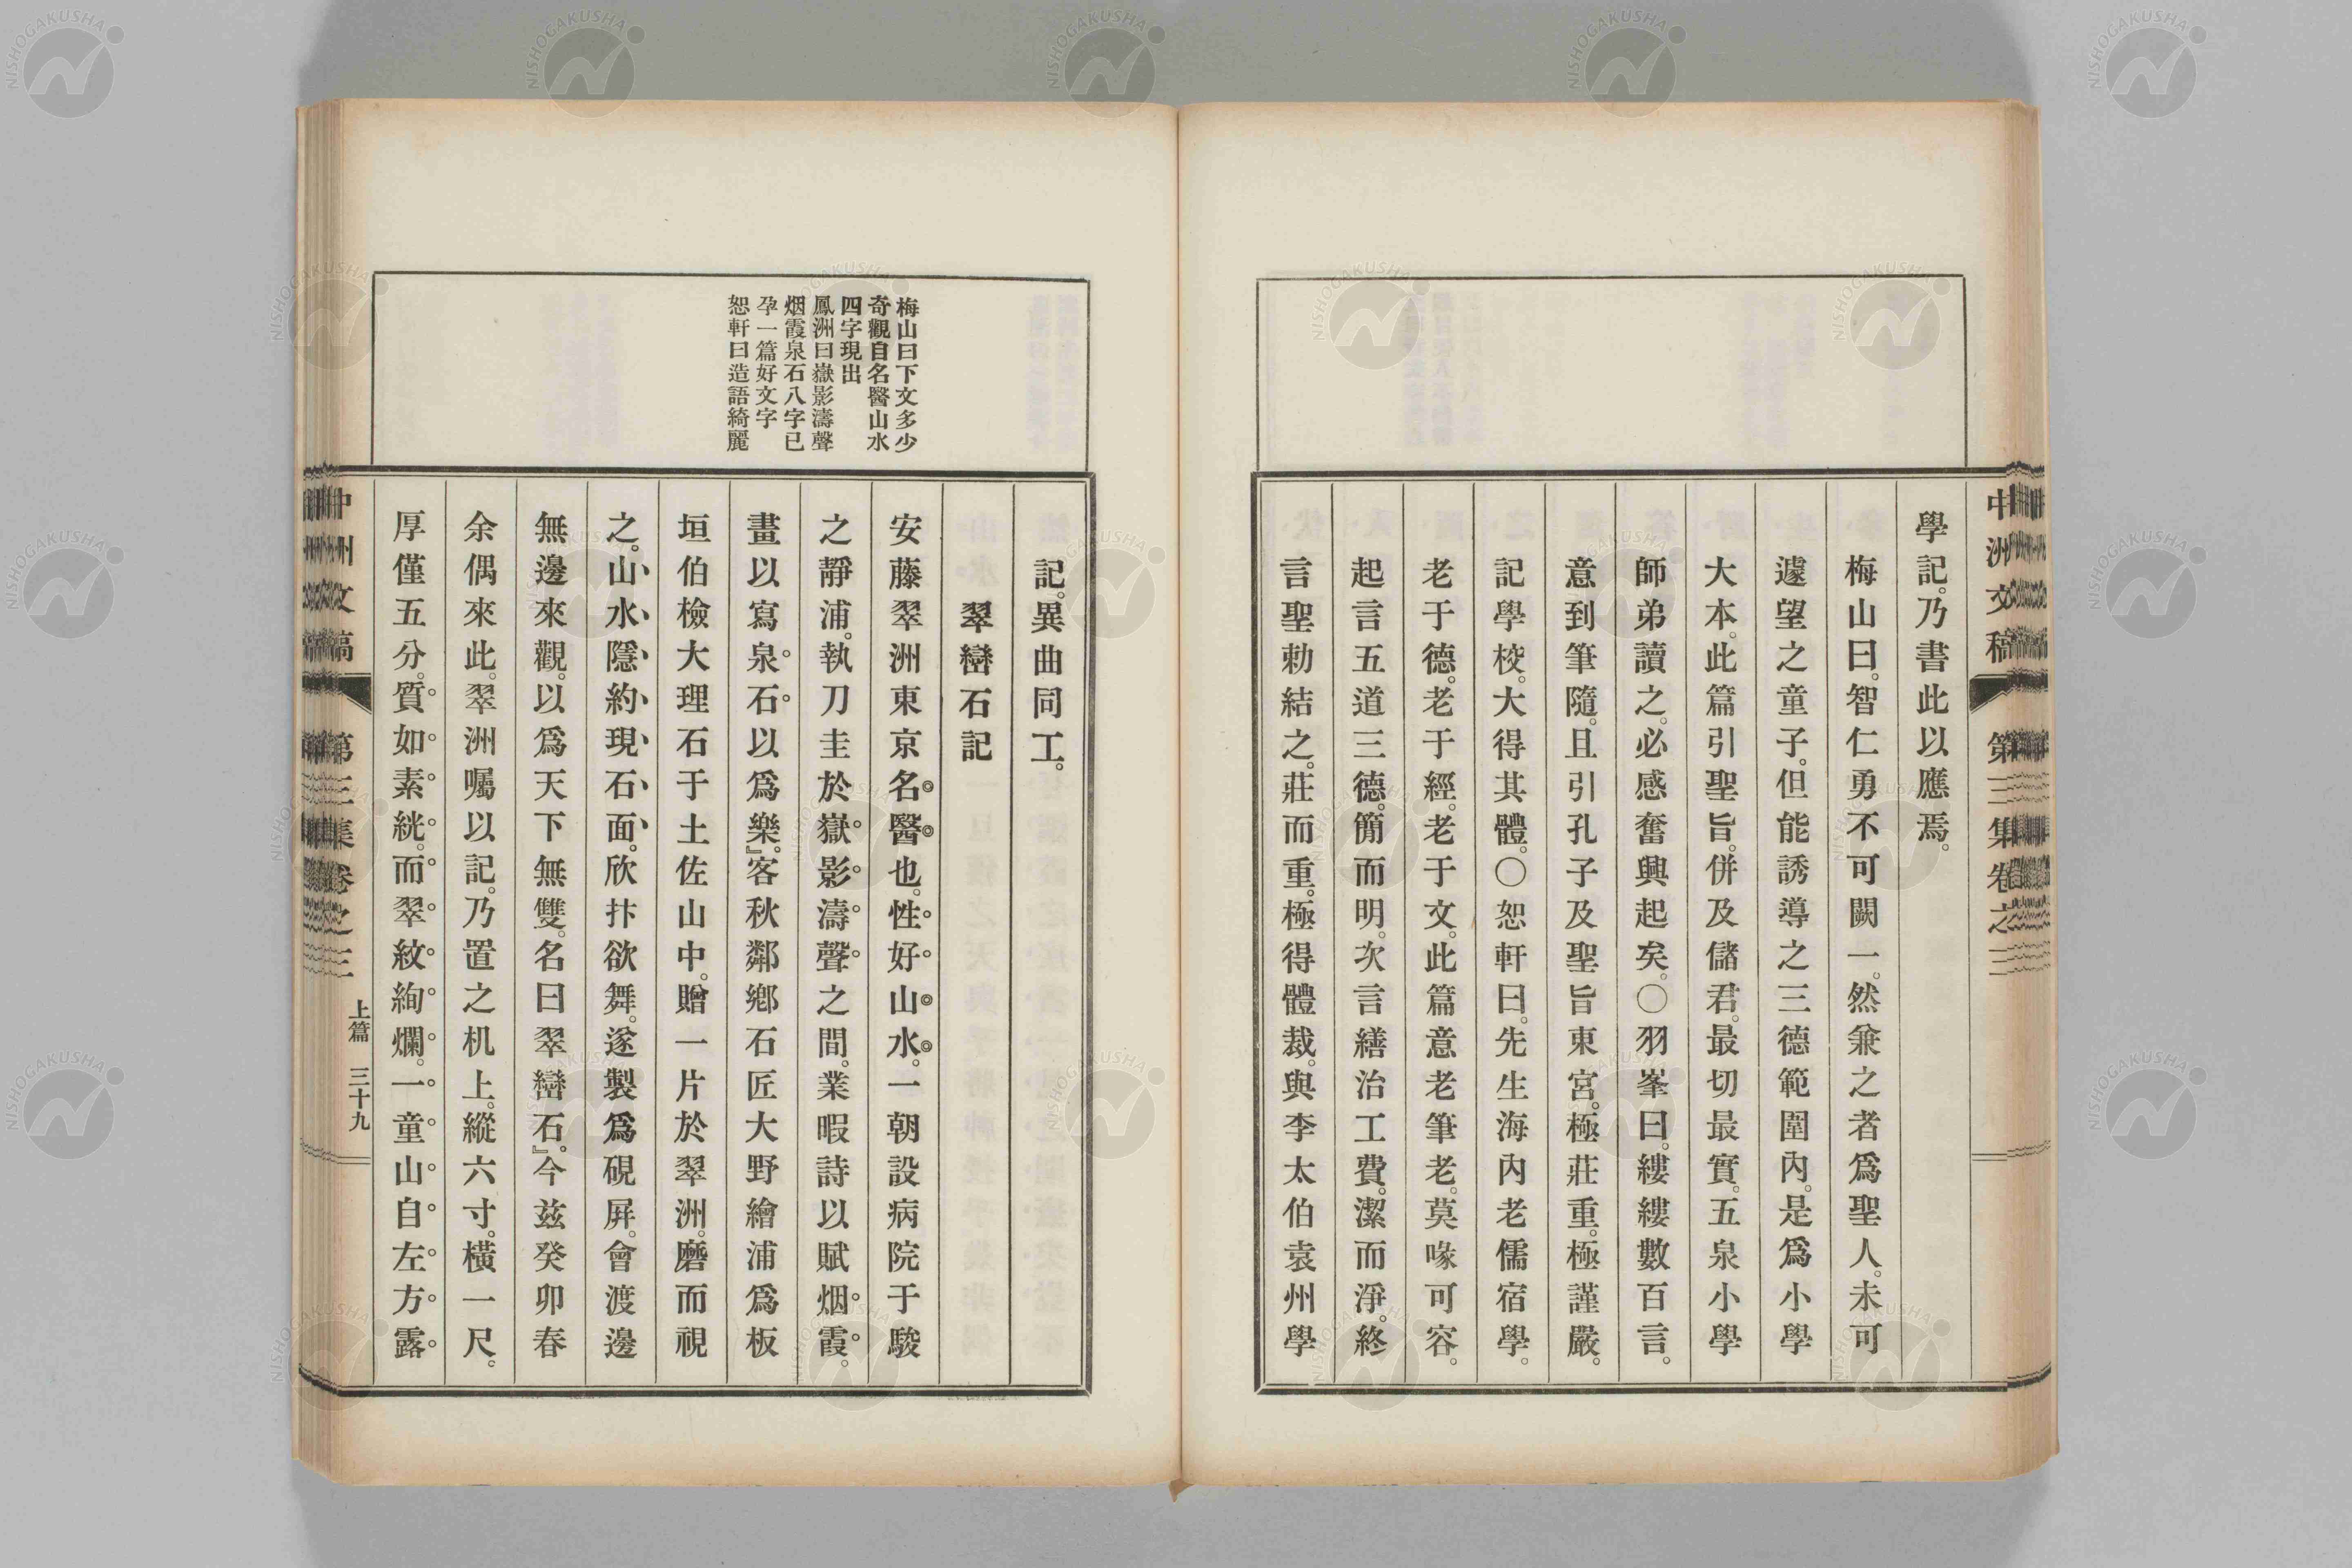 中洲文稿 第三集卷之三
學記。乃書此以應焉。
梅山曰。智仁勇不可闕一。然兼之者爲聖人。未可
遽望之童子。但能誘導之三德範圍內。是爲小學
大本。此篇引聖旨。併及儲君。最切最實。五泉小學
師弟讀之。必感奮興起矣。○羽峯曰。縷縷數百言。
意到筆隨。且引孔子及聖旨東宮。極莊重。極謹嚴。
記學校。大得其體。○恕軒曰。先生海內老儒宿學。
老于德。老于經。老于文。此篇意老筆老。莫喙可容。
起言五道三德。簡而明。次言繕治工費。潔而淨。終
言聖勅結之。莊而重。極得體裁。與李太伯袁州學
梅山曰下文多少
奇觀自名醫山水
四字現出
鳳洲曰嶽影濤聲
烟霞泉石八字已
孕一篇好文字
恕軒曰造語綺麗
記。異曲同工。
翠巒石記
安藤翠洲東京名醫也。性好山水。一朝設病院于駿
之靜浦。執刀圭於嶽影濤聲之間。業暇詩以賦烟霞。
畫以寫泉石以爲樂。』客秋鄰鄉石匠大野繪浦爲板
垣伯檢大理石于土佐山中。贈一片於翠洲。磨而視
之。山水隱約現石面。欣抃欲舞。遂製爲硯屛。會渡邊
無邊來觀。以爲天下無雙。名曰翠巒石。』今玆癸卯春
余偶來此。翠洲囑以記。乃置之机上。縱六寸。橫一尺。
厚僅五分。質如素絖。而翠紋絢爛。一童山自左方露
中洲文稿 第三集卷之三 上篇 三十九
NISHOGAKUSHA